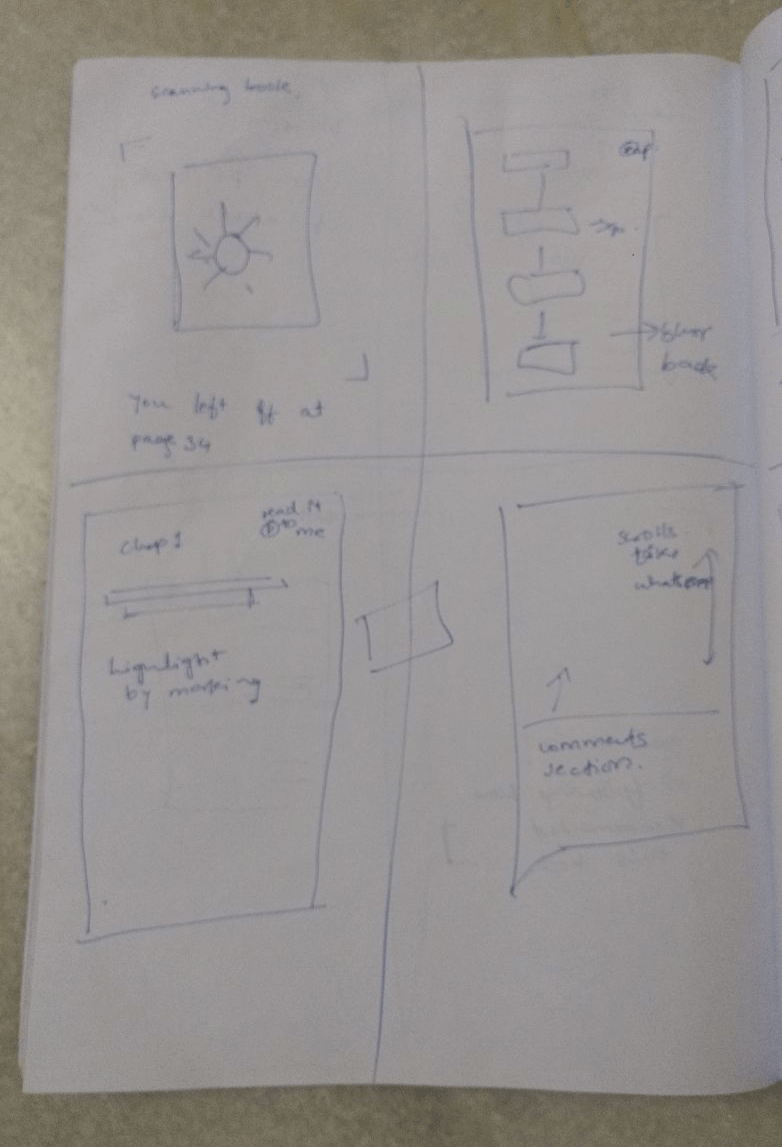 scanning book
You left off at
page 34
blur
back
chap 1
read it
to me
highlight
by marking
scrolls
like
comments
section.